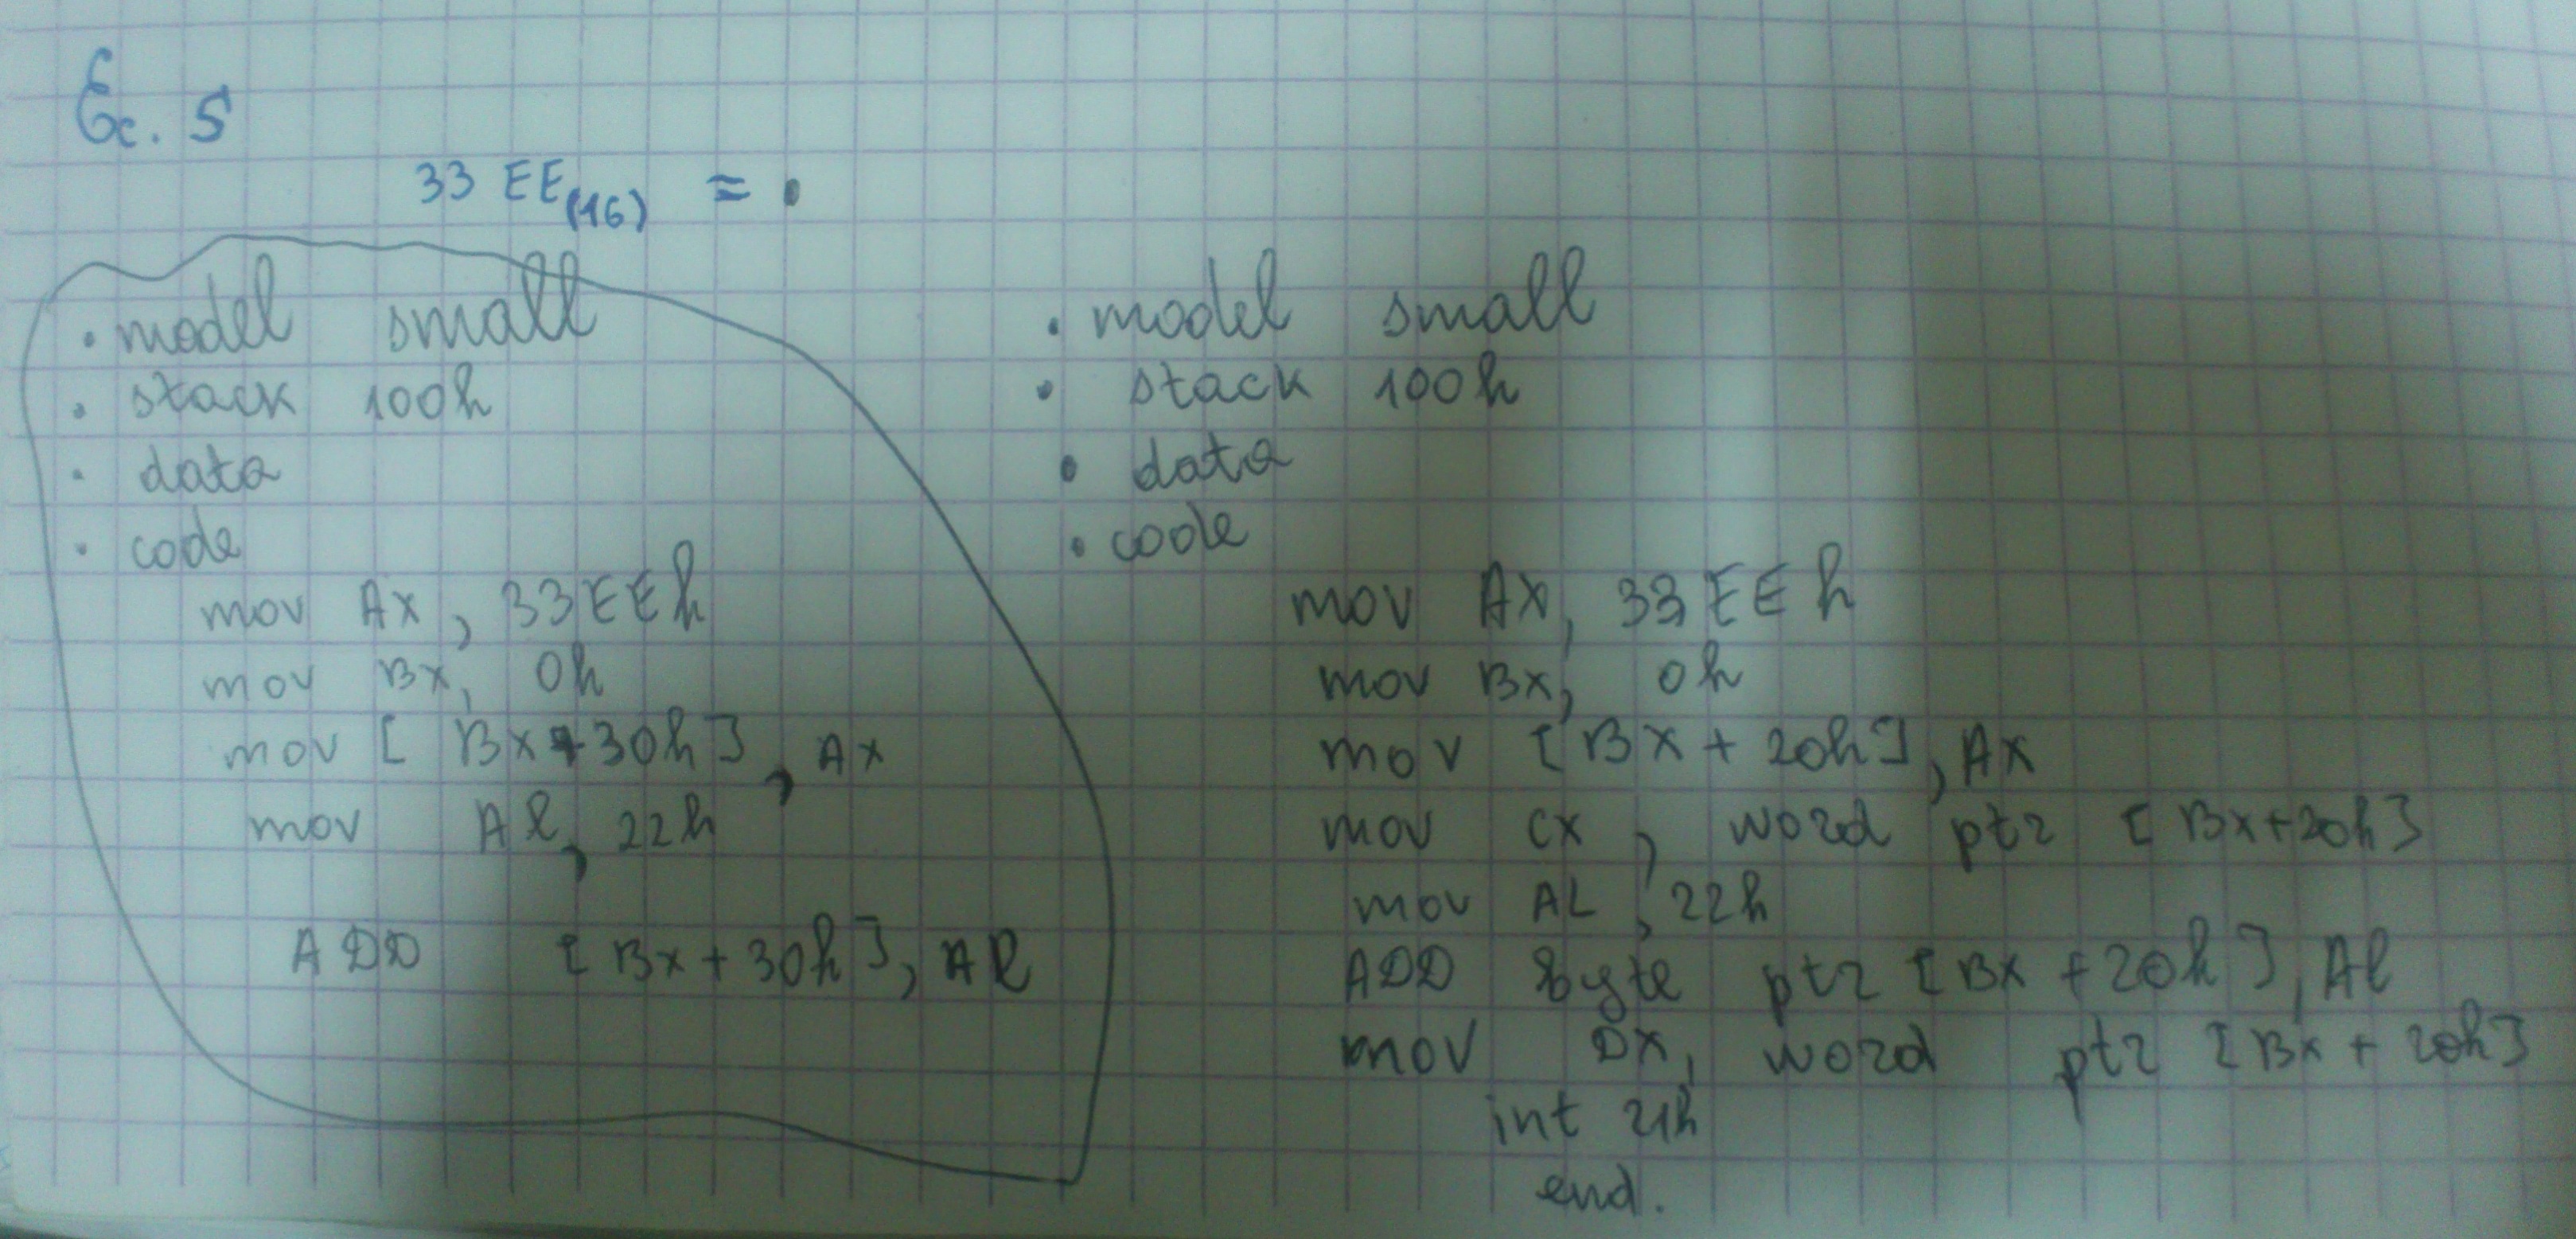 Ex. 5
33 EE(16) =
. model small
. stack 100h
. data
. code
mov Ax, 33EEh
mov Bx, 0h
mov [Bx+30h], Ax
mov Al, 22h
ADD [Bx+30h], Al
. model small
. stack 100h
. data
. code
mov Ax, 33EEh
mov Bx, 0h
mov [Bx+20h], Ax
mov Cx, word ptr [Bx+20h]
mov AL, 22h
ADD byte ptr [Bx+20h], Al
mov Dx, word ptr [Bx+20h]
int 21h
end.